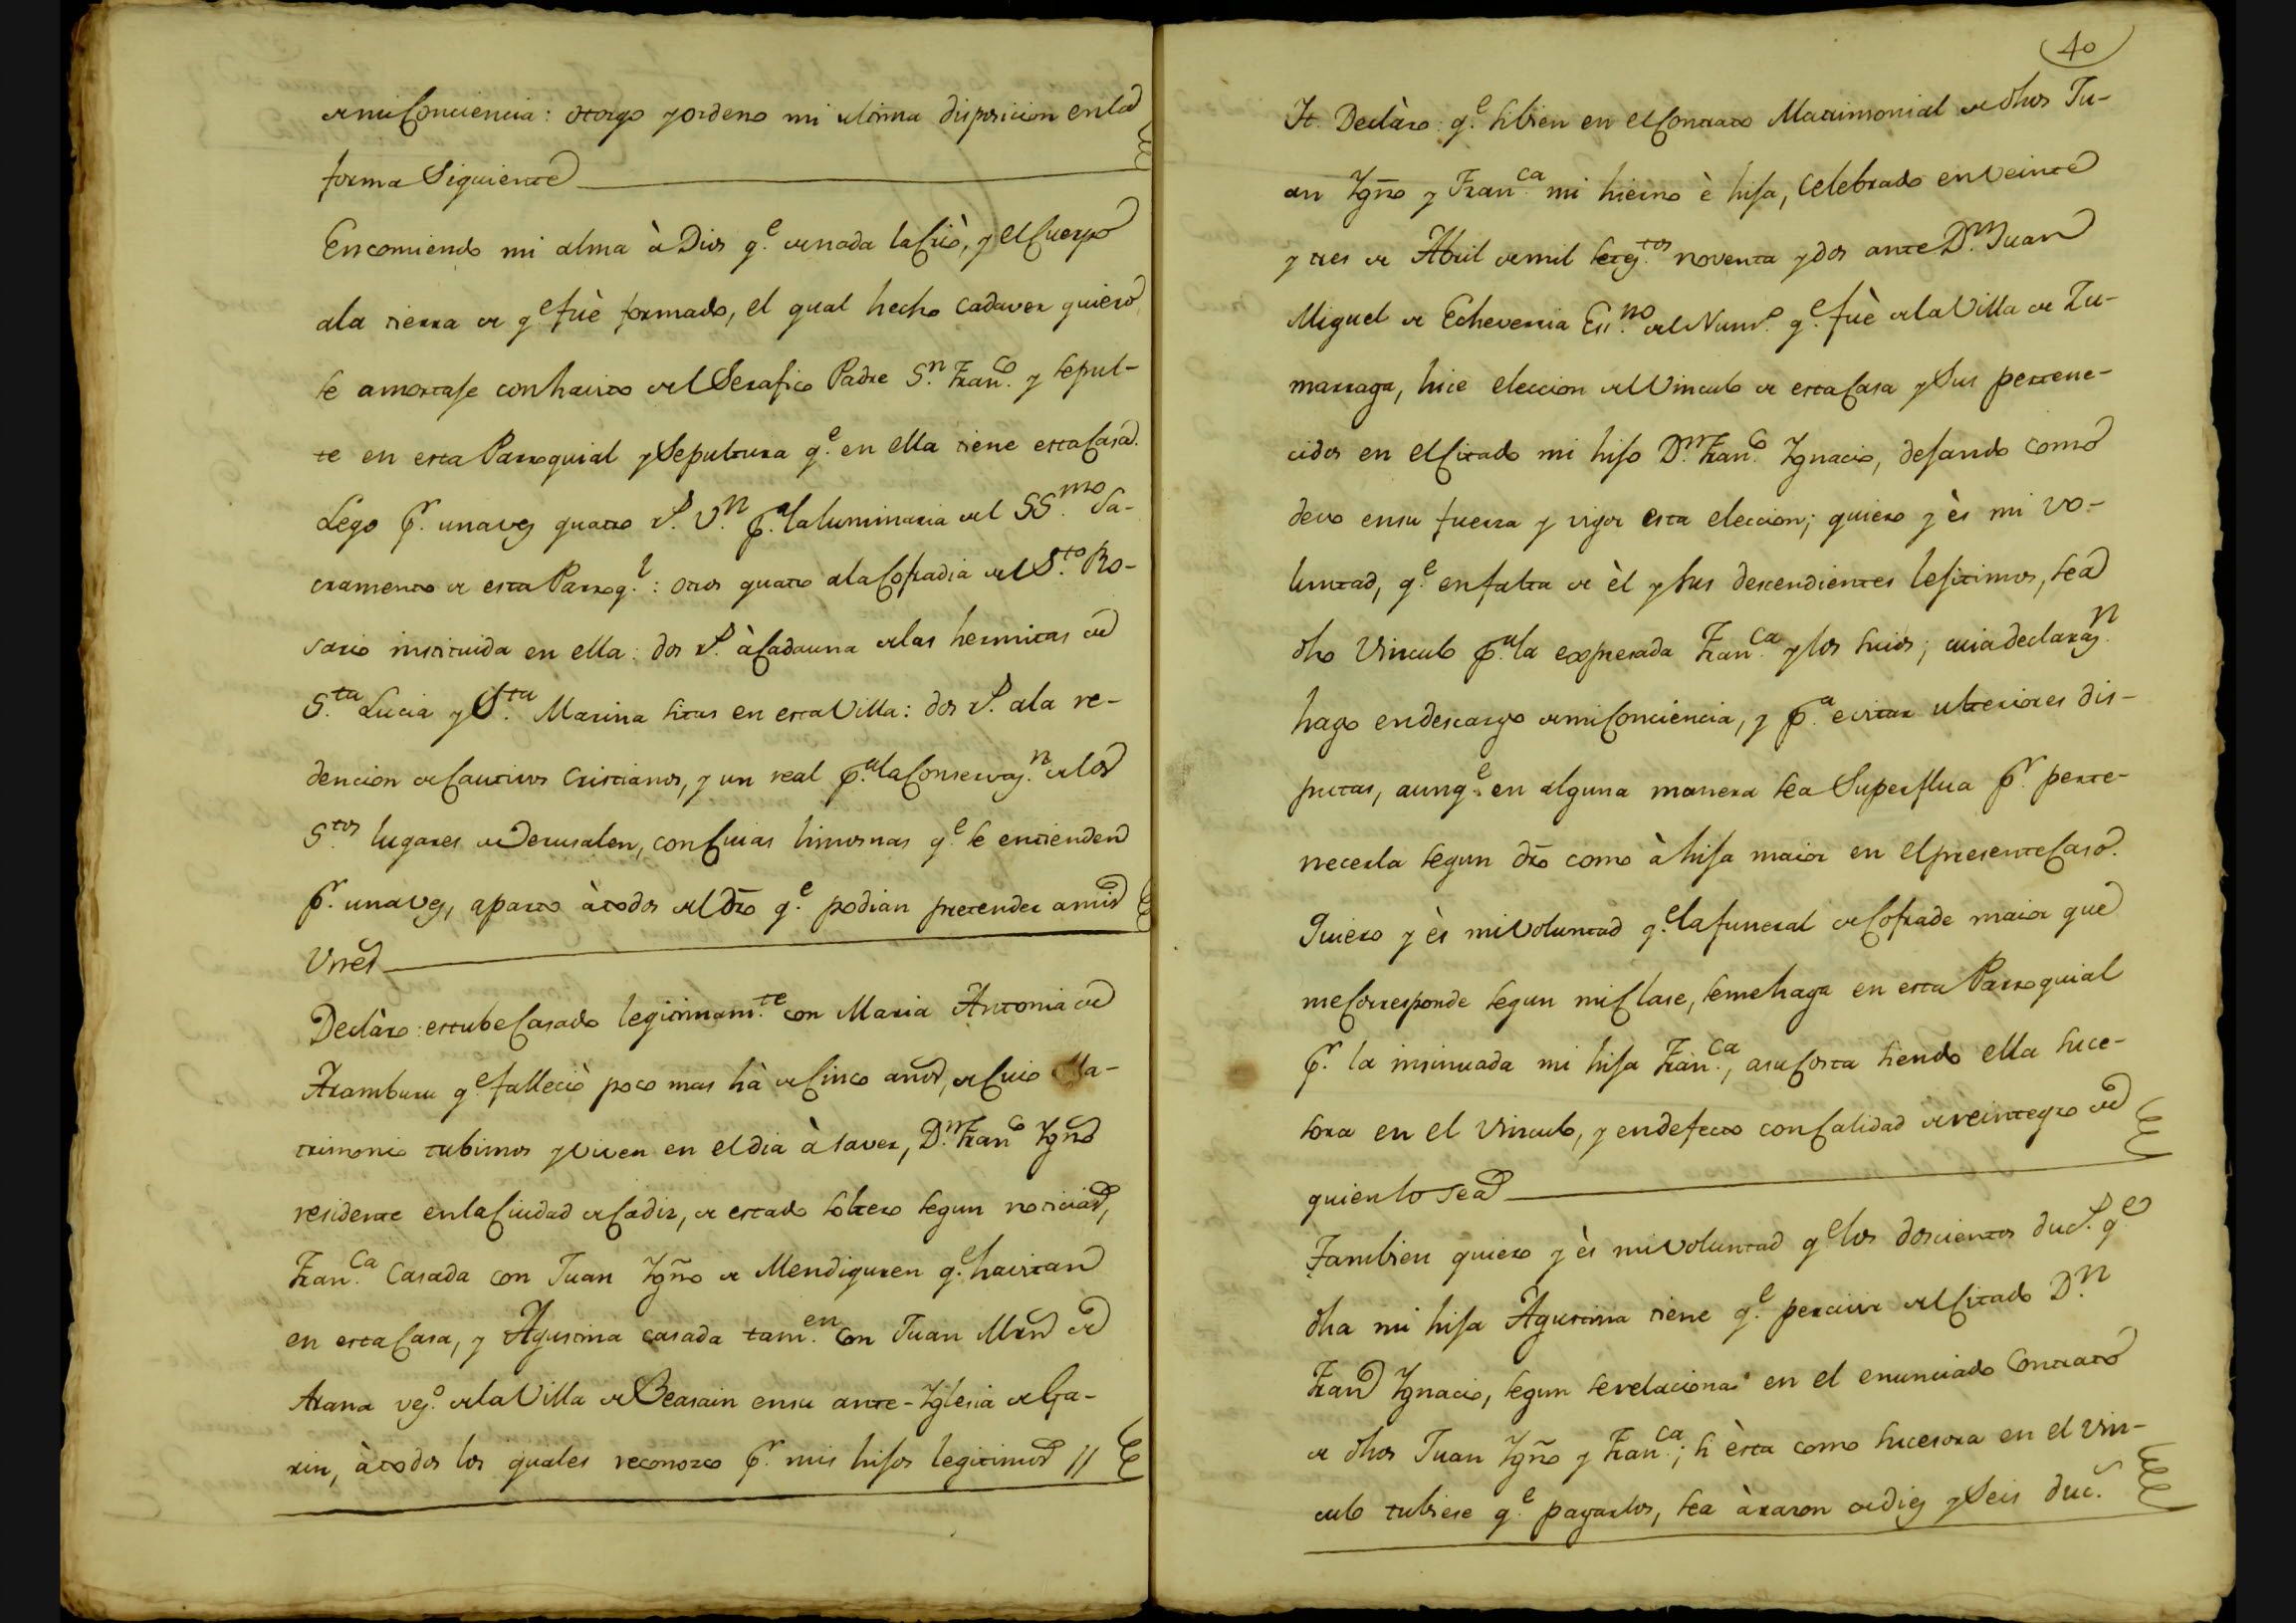 de mi Conciencia: otorgo y ordeno mi ultima disposicion en la
forma Siguiente
Encomiendo mi alma à Dios q.e de nada la Criò, y el Cuerpo
ala tierra de q.e fuè formado, el qual hecho cadaver quiero
se amortaje con havito del Serafico Padre S.n Fran.co y sepul-
te en esta Parroquial y Sepultura q.e en ella tiene esta Casa.
Lego p.r una vez quatro r.s v.n p.a la luminaria del SS.mo Sa-
cramento de esta Parroq.l: otros quatro ala Cofradia del S.to Ro-
sario instituida en ella: dos r.s à Cada una de las hermitas de
S.ta Lucia y S.ta Marina sitas en esta Villa: dos r.s ala re-
dencion de Cautivos Cristianos, y un real p.a la Conservaz.n de los
S.tos lugares de Jerusalen, con Cuias limosnas q.e se entienden
p.r una vez, aparto à todos del dro q.e podian pretender a mis
Vnes
Declàro: estube Casado legitimam.te con Maria Antonia de
Aramburu q.e falleciò poco mas hà de Cinco años, de Cuio Ma-
trimonio tubimos y viven en el dia à saver, D.n Fran.co Ygño
residente en la Ciudad de Cadiz, de estado soltero segun noticias,
Fran.ca Casada con Juan Ygño de Mendiguren q.e havitan
en esta Casa, y Agustina casada tam.en con Juan Mrn de
Arana vez.o de la Villa de Beasain en su ante-Yglesia de Ga-
rin, à todos los quales reconozco p.r mis hijos legitimos //
40
It. Declàro: q.e si bien en el Contrato Matrimonial de dhos Ju-
an Ygño y Fran.ca mi hierno è hija, Celebrado en veinte
y tres de Abril de mil setez.tos noventa y dos ante D.n Juan
Miguel de Echeverria Ess.no del Num.o q.e fuè de la Villa de Zu-
marraga, hice eleccion del Vinculo de esta Casa y Sus pertene-
cidos en el Citado mi hijo D.n Fran.co Ygnacio, dejando como
devo en su fuerza y vigor esta eleccion; quiero y ès mi vo-
luntad, q.e en falta de èl y sus descendientes lejitimos, sea
dho Vinculo p.a la expresada Fran.ca y los suios; cuia declaraz.n
hago en descargo de mi Conciencia, y p.a evitar ulteriores dis-
putas, aunq.e en alguna manera sea Superflua p.r perte-
necerla segun dro como à hija maior en el presente Caso.
Quiero y ès mi Voluntad q.e la funeral de Cofrade maior que
me Corresponde segun mi Clase, se me haga en esta Parroquial
p.r la insinuada mi hija Fran.ca, a su Costa siendo ella suce-
sora en el Vinculo, y en defecto con Calidad de reintegro de
quien lo sea
Tambien quiero y ès mi voluntad q.e los doscientos duc.s q.e
dha mi hija Agustina tiene q.e percivir del Citado D.n
Fran.co Ygnacio, segun se relaciona en el enunciado Contrato
de dhos Juan Ygño y Fran.ca; si èsta como sucesora en el Vin-
culo tubiese q.e pagarlos, sea à razon de diez y Seis duc.s